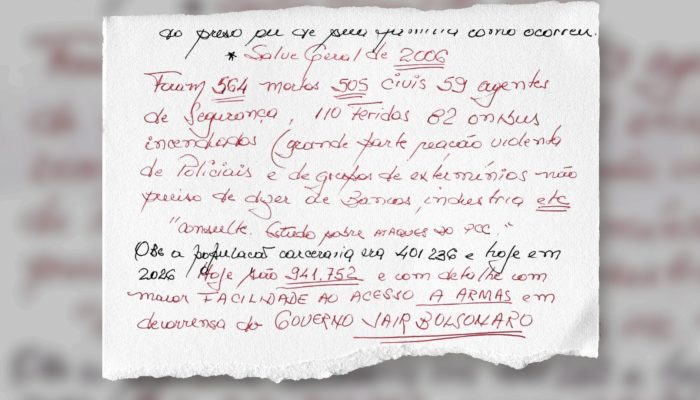 do preso ou de sua família como ocorreu.
* Salve Geral de 2006
Foram 564 mortos 505 civis 59 agentes
de Segurança, 110 feridos 82 onibus
incendiados (grande parte reação violenta
de Policiais e de grupos de extermínios não
preciso de dizer de Bancos, industria etc
"consulte. Estudo sobre ATAQUES DO PCC."
OBS a população carceraria era 401 236 e hoje em
2026 Hoje são 941.752 e com detalhe com
maior FACILIDADE AO ACESSO A ARMAS em
decorrensa do GOVERNO JAIR BOLSONARO